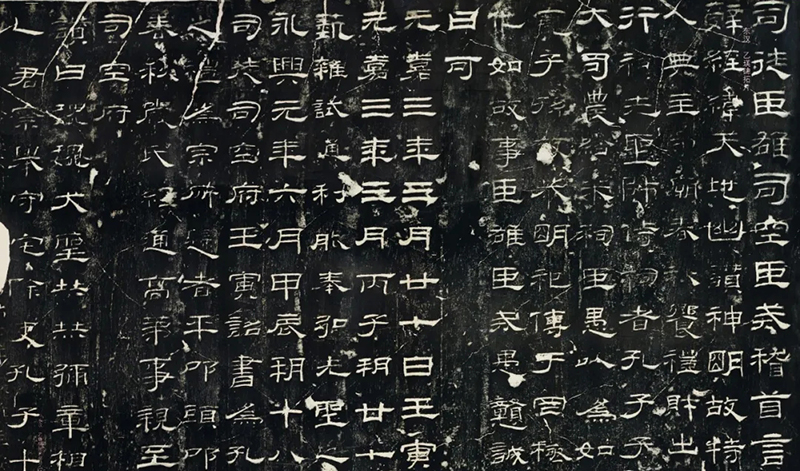 司徒臣雄司空臣戒稽首言
辭經緯天地幽讚神明故特
人典主守廟春秋饗禮財出
行祠先聖師侍祠者孔子子
大司農給米祠臣愚以為如
子孫敬恭明祀傳于罔極
比如故事臣雄臣戒愚戇誠
曰可
元嘉三年三月廿七日壬寅
元嘉三年三月丙子朔廿七
藝雜試通利能奉弘先聖之
永興元年六月甲辰朔十八
司徒司空府壬寅詔書為孔
之禮為宗所歸者平叩頭叩
春秋嚴氏經通高第事親至
司空府
讚曰巍巍大聖赫赫彌章相
人君察舉守宅除吏孔子十